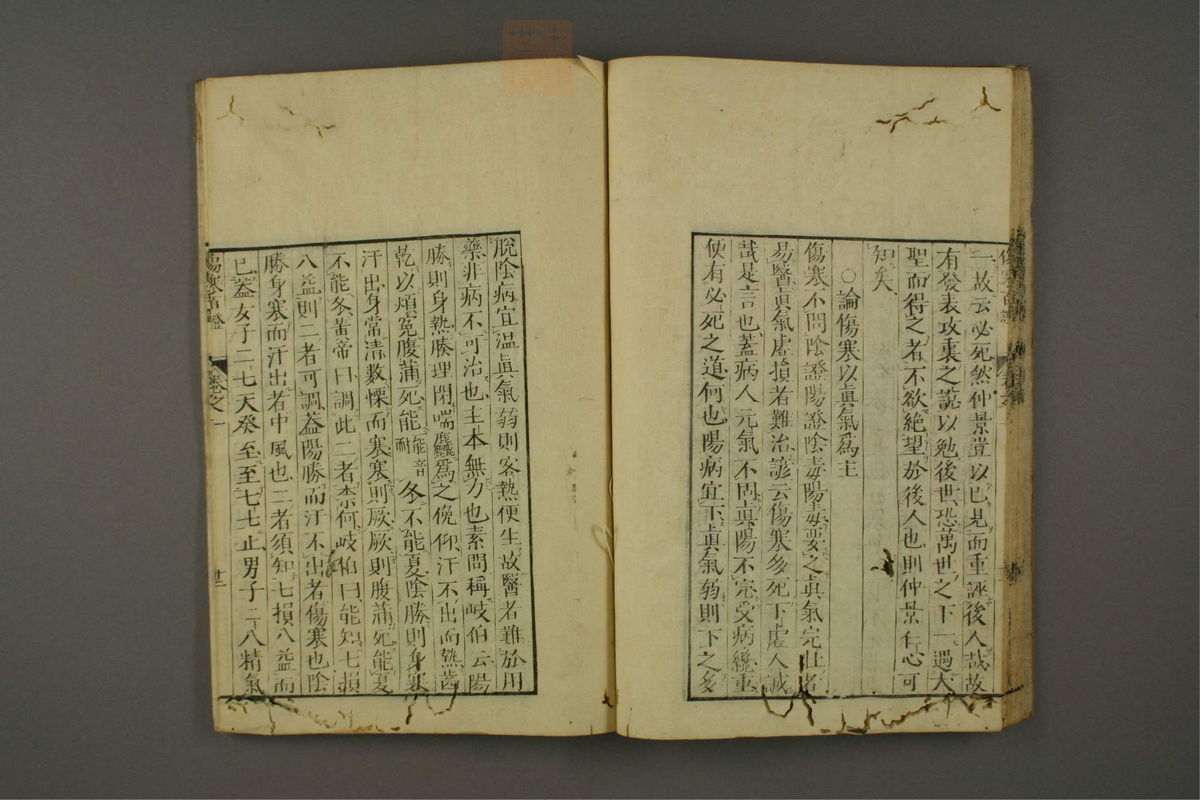 二故云必死然仲景豈以已見而重誣後人哉故
有發表攻裏之說以勉後世恐萬世之下一遇大
聖而得之者不欲絶望於後人也則仲景仁心可
知矣
○論傷寒以眞氣爲主
傷寒不問陰證陽證陰毒陽毒要之眞氣完壯者
易醫眞氣虛損者難治諺云傷寒多死下虛人誠
哉是言也蓋病人元氣不固眞陽不完受病纔重
便有必死之道何也陽病宜下眞氣弱則下之多
脫陰病宜溫眞氣弱則客熱便生故醫者難於用
藥非病不可治也主本無力也素問稱岐伯云陽
勝則身熱腠理閉喘麤爲之俛仰汗不出而熱齒
乾以煩寃腹滿死能能音耐冬不能夏陰勝則身寒
汗出身常清數慄而寒寒則厥厥則腹滿死能夏
不能冬黃帝曰調此二者柰何岐伯曰能知七損
八益則二者可調蓋陽勝而汗不出者傷寒也陰
勝身寒而汗出者中風也二者須知七損八益而
已蓋女子二七天癸至至七七止男子二八精氣
傷寒百證
卷之一
廿二